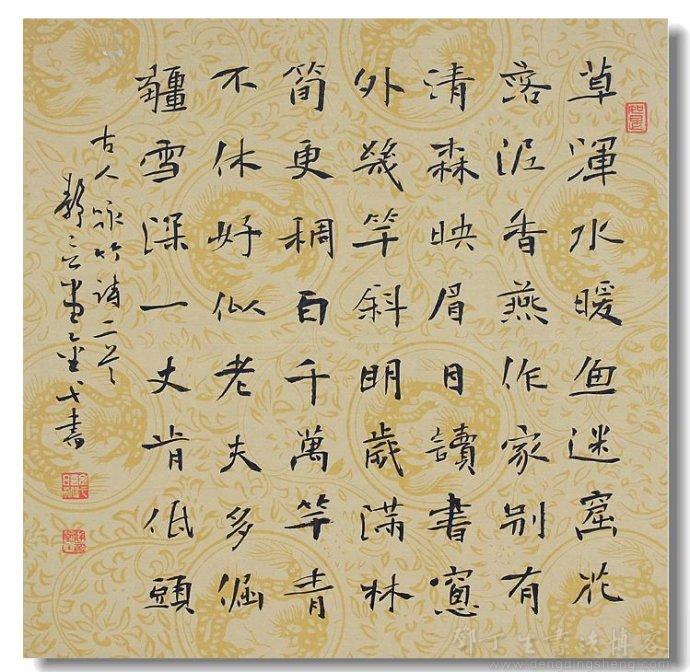 草渾水暖魚迷窟花
落泥香燕作家別有
清森映眉目讀書窻
外幾竿斜明歲滿林
筍更稠百千萬竿青
不休好似老夫多倔
疆雪深一丈肯低頭
古人詠竹詩二首
金戈書
如是
邓丁生書法博客
www.dengdingsheng.com